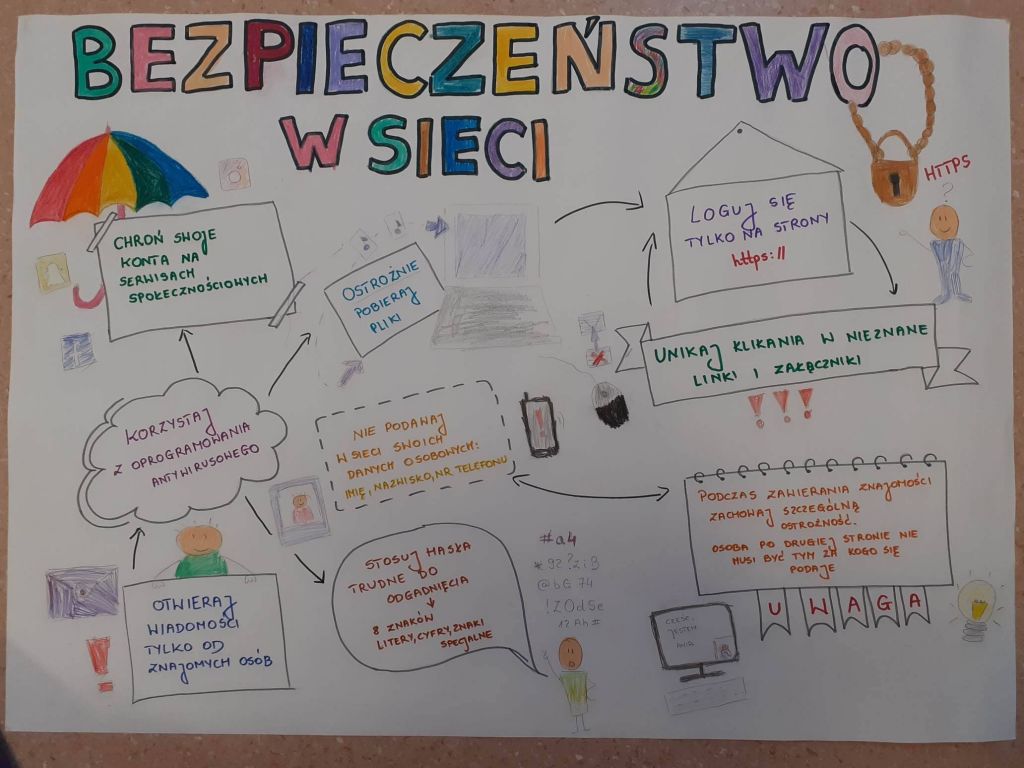 BEZPIECZEŃSTWO
W SIECI
CHROŃ SWOJE
KONTA NA
SERWISACH
SPOŁECZNOŚCIOWYCH
OSTROŻNIE
POBIERAJ
PLIKI
LOGUJ SIĘ
TYLKO NA STRONY
https://
HTTPS
?
UNIKAJ KLIKANIA W NIEZNANE
LINKI I ZAŁĄCZNIKI
! ! !
KORZYSTAJ
Z OPROGRAMOWANIA
ANTYWIRUSOWEGO
NIE PODAWAJ
W SIECI SWOICH
DANYCH OSOBOWYCH:
IMIĘ, NAZWISKO, NR TELEFONU
!
PODCZAS ZAWIERANIA ZNAJOMOŚCI
ZACHOWAJ SZCZEGÓLNĄ
OSTROŻNOŚĆ.
OSOBA PO DRUGIEJ STRONIE NIE
MUSI BYĆ TYM ZA KOGO SIĘ
PODAJE
UWAGA
OTWIERAJ
WIADOMOŚCI
TYLKO OD
ZNAJOMYCH OSÓB
!
STOSUJ HASŁA
TRUDNE DO
ODGADNIĘCIA
↓
8 ZNAKÓW
LITERY, CYFRY, ZNAKI
SPECJALNE
#a4
*92?ziB
@bG 74
!ZOdSe
12Ah#
CZEŚĆ,
JESTEM
ANIA